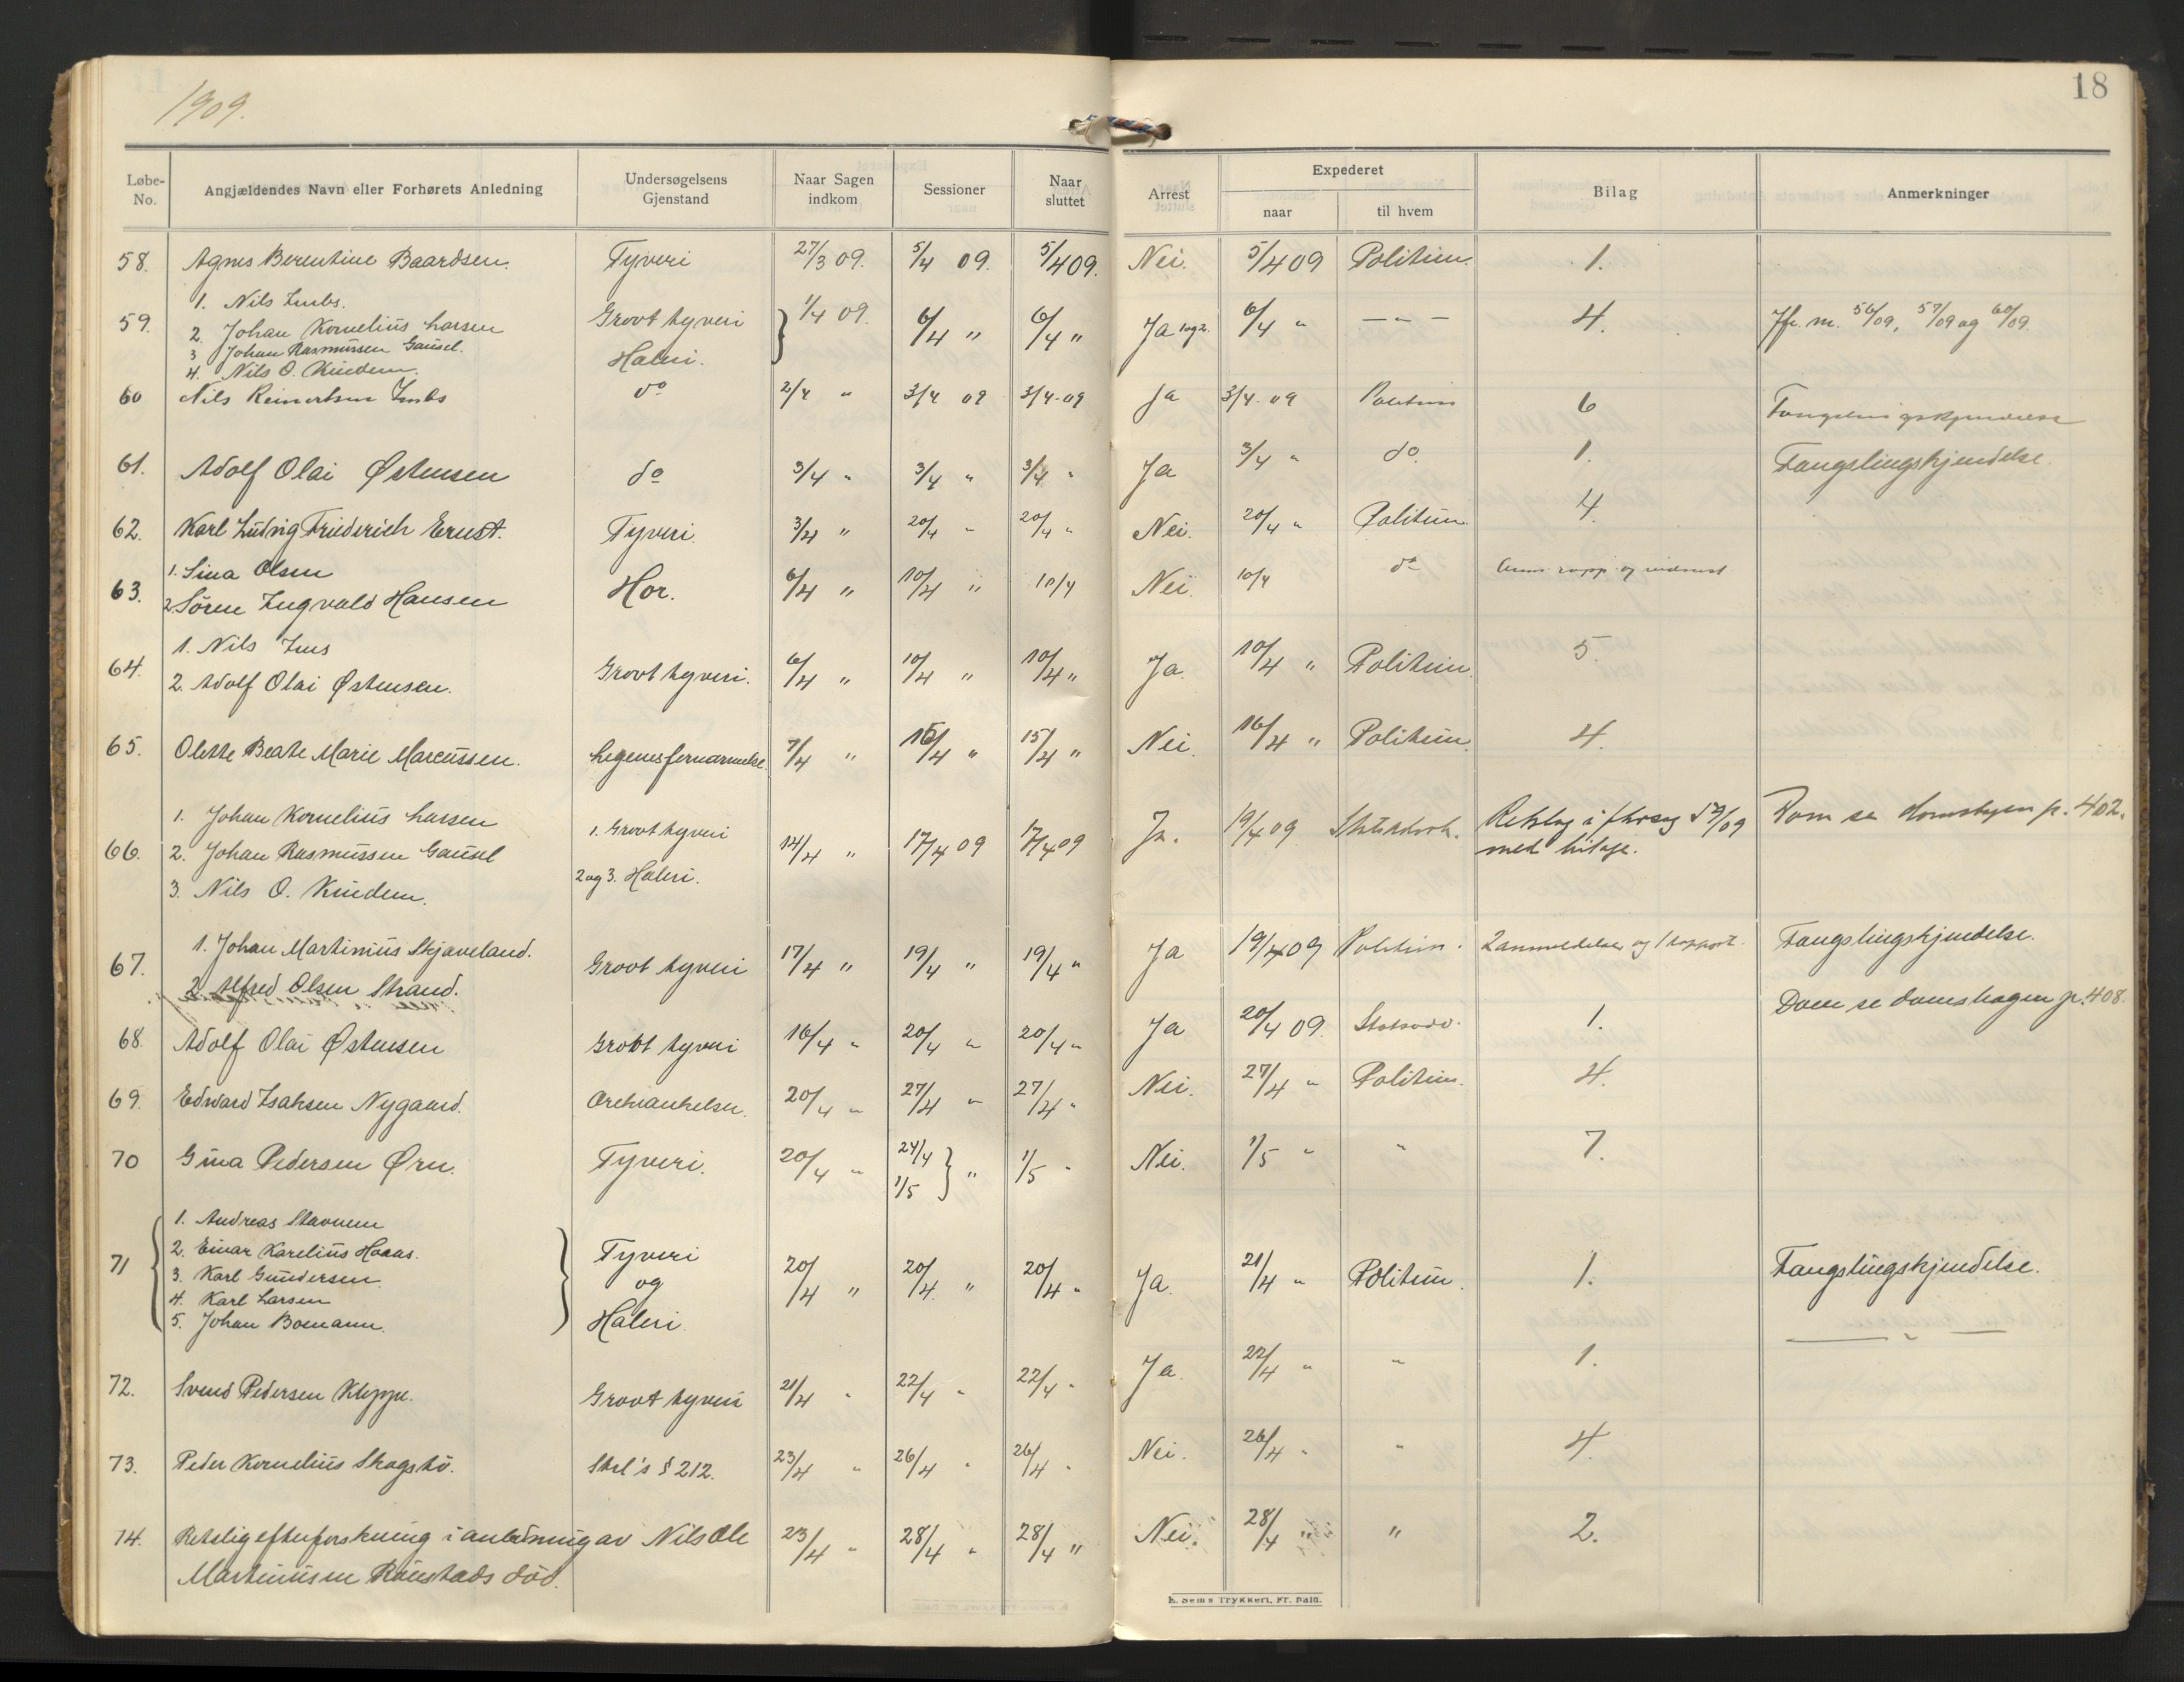 1909.
18
Løbe-No.
Angjældendes Navn eller Forhørets Anledning
Undersøgelsens Gjenstand
Naar Sagen indkom
Sessioner
Naar sluttet
Arrest
Expederet
naar
til hvem
Bilag
Anmerkninger
58. Agnes Berentine Baardsen. Tyveri 27/3 09. 5/4 09. 5/4 09. Nei. 5/4 09 Politiem. 1.
59. 1. Nils Imbs. Grovt tyveri 1/4 09. 6/4 " 6/4 " Ja 1 og 2. 6/4 " — " — 4. Jfr. m. 56/09, 57/09 og 60/09.
2. Johan Kornelius Larsen
3 Johan Rasmussen Gausel. Hæleri.
4. Nils O. Kindem.
60 Nils Reinertsen Imbs do 2/4 " 3/4 09 3/4-09 Ja 3/4-09 Politiem 6 Fængslingskjendelse
61. Adolf Olai Østensen do 3/4 " 3/4 " 3/4 " Ja 3/4 " do. 1. Fængslingskjendelse.
62. Karl Ludvig Friederich Ernst. Tyveri. 3/4 " 20/4 " 20/4 " Nei. 20/4 " Politiem. 4.
63. 1. Sina Olsen
2. Sören Ingvald Hansen Hor. 6/4 " 10/4 " 10/4 Nei. 10/4 do
64. 1. Nils Ims
2. Adolf Olai Østensen. Grovt tyveri. 6/4 " 10/4 " 10/4 " Ja. 10/4 " Politiem. 5.
65. Olette Beate Marie Marcussen. Legemsfornærmelse. 7/4 " 15/4 " 15/4 " Nei. 16/4 " Politiem. 4.
66. 1. Johan Kornelius Larsen 1. Grovt tyveri 14/4 " 17/4 09 17/4 09 Ja. 19/4 09 med bilage. Dom se domsbogen p. 402.
2. Johan Rasmussen Gausel
3. Nils O. Kindem. 2 og 3. Hæleri.
67. 1. Johan Martinius Skjæveland. Grovt tyveri 17/4 " 19/4 " 19/4 " Ja 19/4 09 Politiem. 2 anmeldelser og 1 rapport. Fængslingskjendelse.
2. Alfred Olsen Strand.
68. Adolf Olai Østensen Grovt tyveri 16/4 " 20/4 " 20/4 " Ja 20/4 09. Statsadv. 1. Dom se domsbogen p. 408.
69. Edward Isaksen Nygaard. Ærekrænkelser. 20/4 " 27/4 " 27/4 " Nei. 27/4 " Politiem. 4.
70 Gina Pedersen Ørn. Tyveri. 20/4 " 24/4 1/5 " 1/5 " Nei. 1/5 " " 7.
71 1. Andreas Stavnem Tyveri og Hæleri. 20/4 " 20/4 " 20/4 " Ja. 21/4 " Politiem. 1. Fængslingskjendelse.
2. Einar Karelius Haaas.
3. Karl Gundersen
4. Karl Larsen
5. Johan Bomann.
72. Svend Pedersen Kleppe. Grovt tyveri 21/4 " 22/4 " 22/4 " Ja. 22/4 " " 1. — " —
73. Peder Kornelius Skagstö. Strl's § 212. 23/4 " 26/4 " 26/4 " Nei. 26/4 " " 4.
74. Retslig efterforskning i anledning av Nils Ole 23/4 " 28/4 " 28/4 " Nei. 28/4 " " 2.
Martiniusen Raustads död.